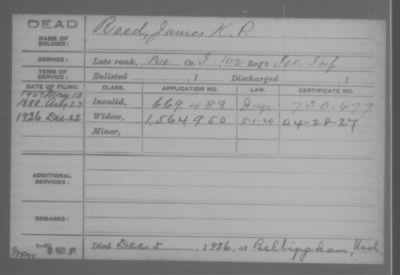 DEAD
NAME OF SOLDIER: Reed, James K. P.
SERVICE: Late rank, Pvt Co. I, 102 Reg't Ill. Inf
TERM OF SERVICE: Enlisted , 1 Discharged , 1
DATE OF FILING. CLASS. APPLICATION NO. LAW. CERTIFICATE NO.
1888 Aug 23 Invalid, 669489 730.677
1926 Dec 22 Widow, 1,564,950 5-1-20 A-4-28-27
Minor,
ADDITIONAL SERVICES:
REMARKS:
Died Dec. 5, 1926, at Bellingham, Wash